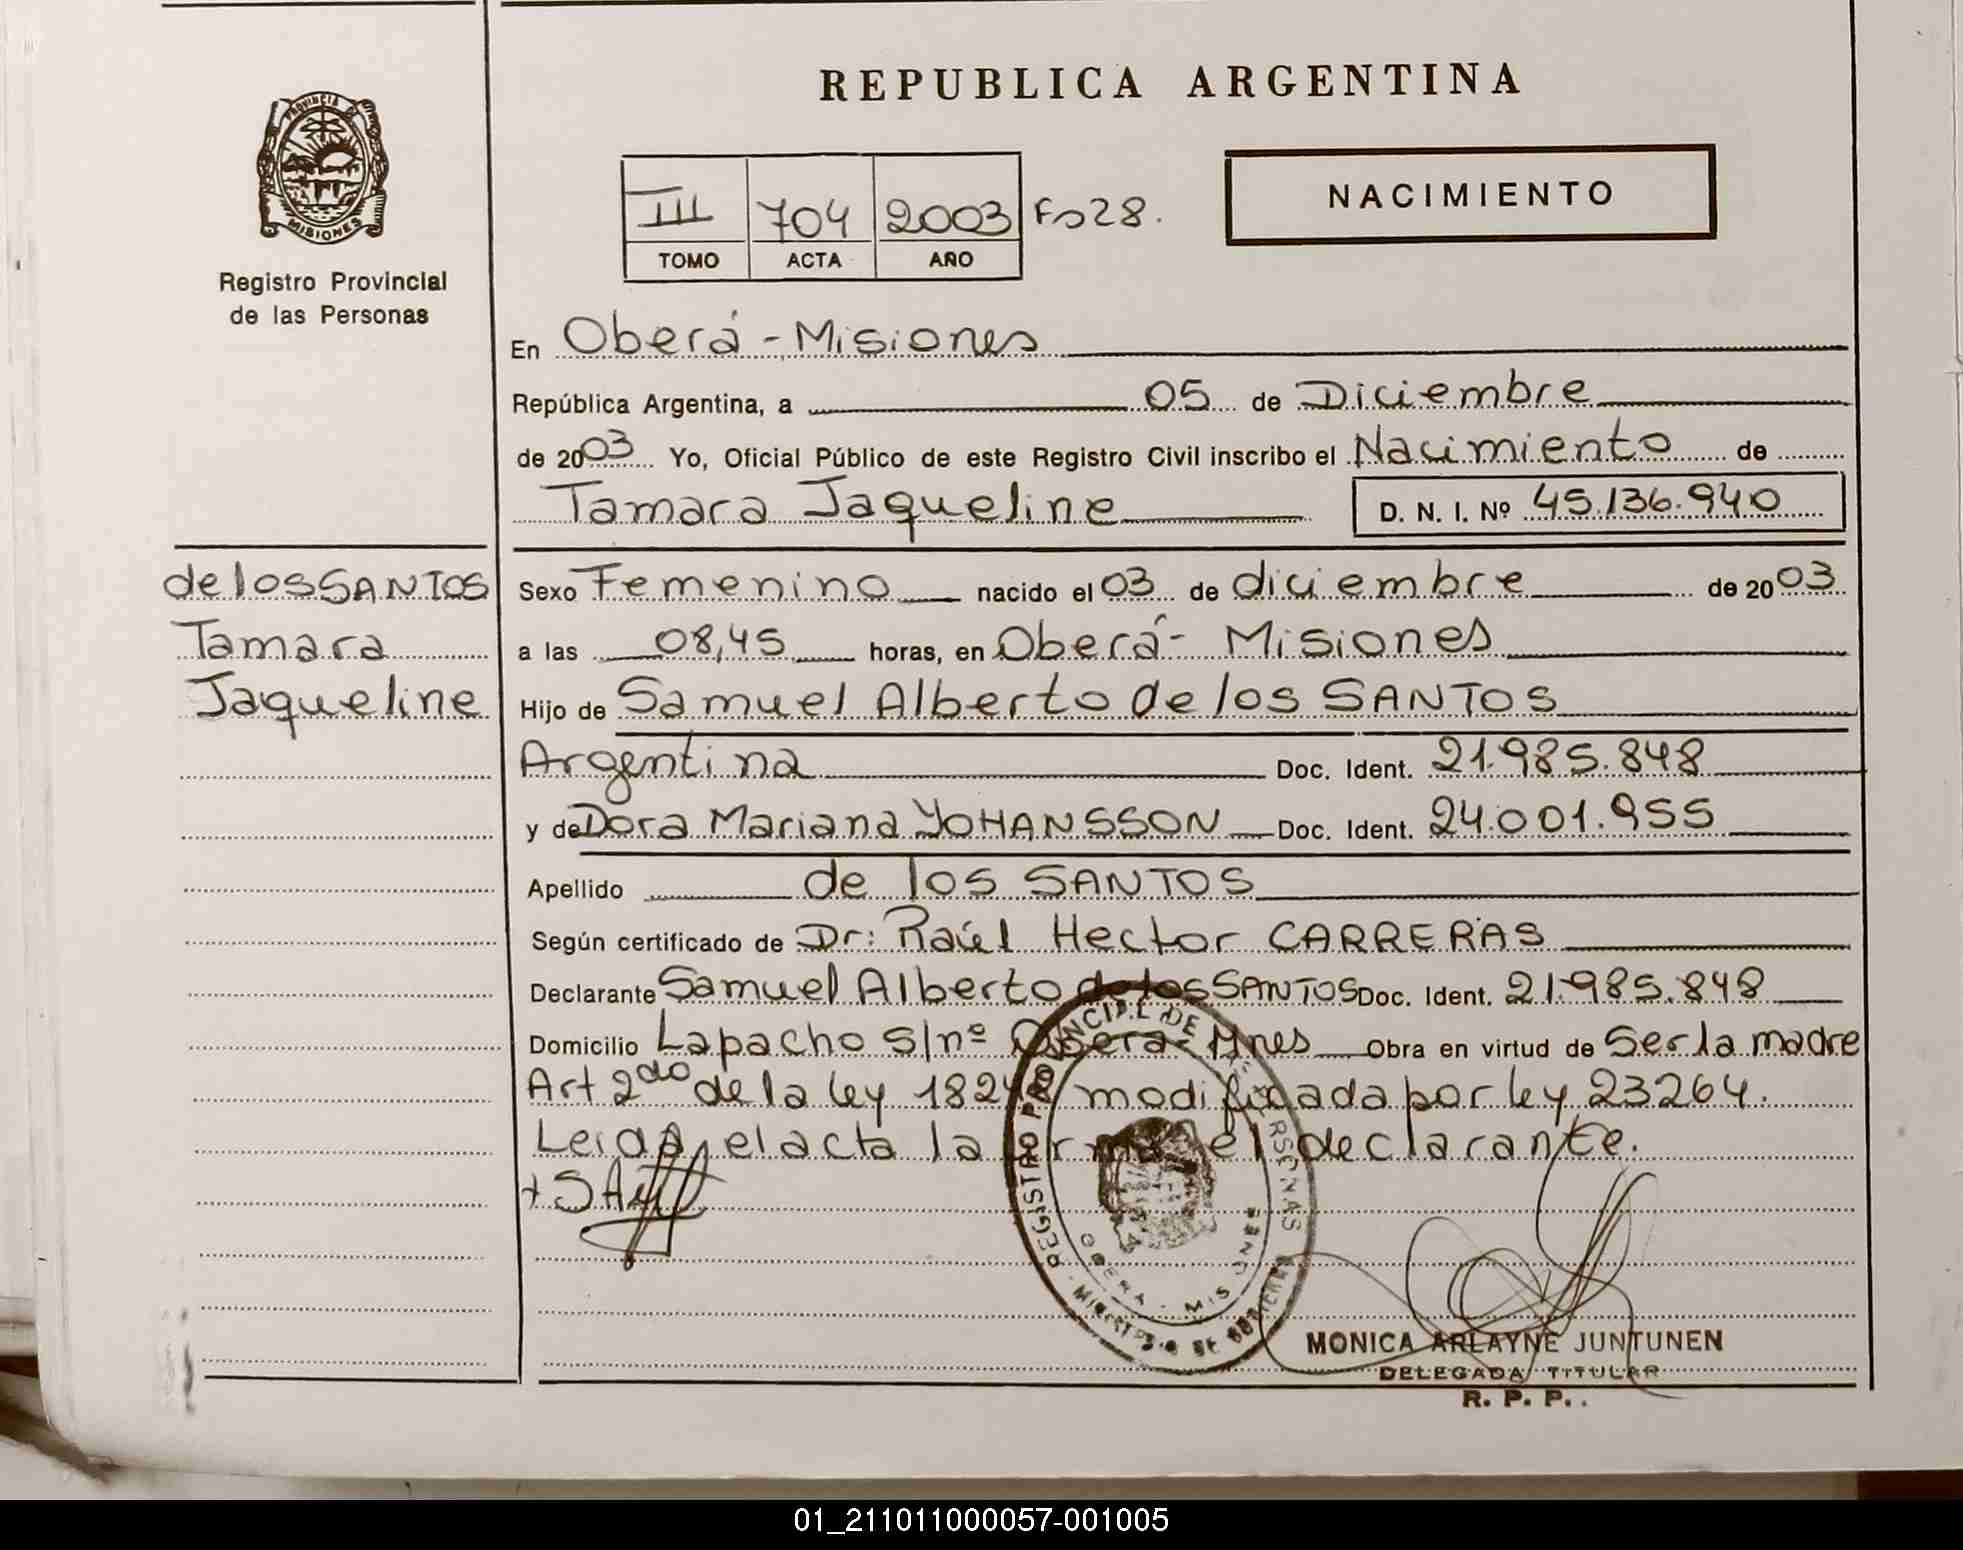 REPUBLICA ARGENTINA
PROVINCIA DE
MISIONES
Registro Provincial
de las Personas
III 704 2003 Fo 28.
TOMO ACTA AÑO
NACIMIENTO
En Oberá - Misiones
República Argentina, a 05 de Diciembre
de 2003 Yo, Oficial Público de este Registro Civil inscribo el Nacimiento de
Tamara Jaqueline D. N. I. Nº 45.136.940
de los SANTOS
Tamara
Jaqueline
Sexo Femenino nacido el 03 de diciembre de 2003
a las 08,45 horas, en Oberá - Misiones
Hijo de Samuel Alberto de los SANTOS
Argentina Doc. Ident. 21.985.848
y de Dora Mariana YOHANSSON Doc. Ident. 24.001.955
Apellido de los SANTOS
Según certificado de Dr: Raúl Hector CARRERAS
Declarante Samuel Alberto de los SANTOS Doc. Ident. 21.985.848
Domicilio Lapacho s/nº Oberá - Mnes Obra en virtud de Ser la madre
Art 2do de la ley modificada por ley 23264.
Leida el acta la firma el declarante.
REGISTRO PROVINCIAL DE PERSONAS
OBERA - MISIONES
MONICA ARLAYNE JUNTUNEN
DELEGADA TITULAR
R. P. P.
01_211011000057-001005